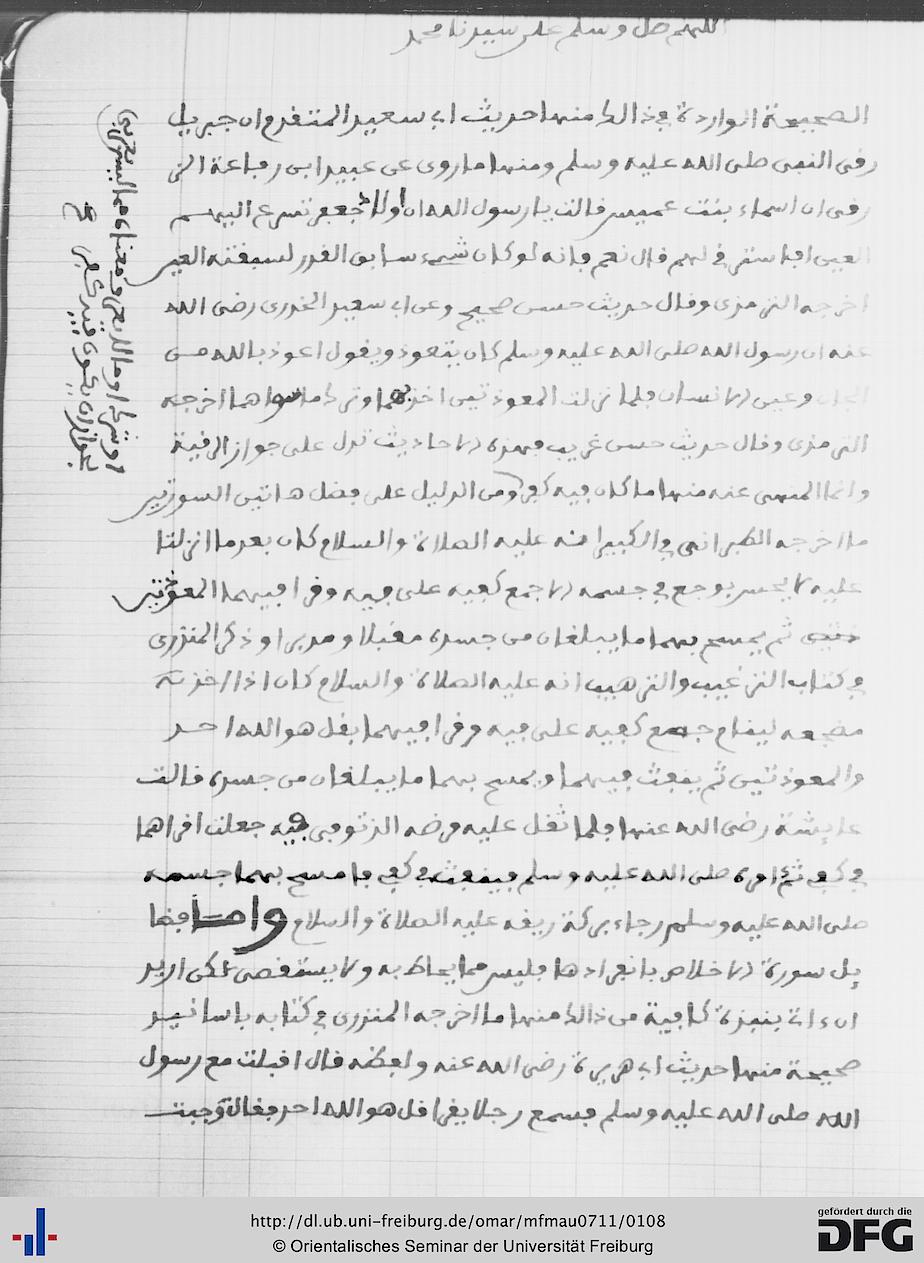 اللهم صل وسلم على سيدنا محمد
الصحيحة الواردة في ذالك منها حديث ابي سعيد المتقدم ان جبريل
رقى النبي صلى الله عليه وسلم ومنها ما روى عن عبيد ابن رفاعة الز
رقي ان اسماء بنت عميس قالت يا رسول الله ان اولاد جعفر تسرع اليهم
العين افاستر في لهم قال نعم فانه لو كان شيء سابق القدر لسبقته العين
اخرجه الترمذي وقال حديث حسن صحيح وعن ابي سعيد الخدري رضي الله
عنه ان رسول الله صلى الله عليه وسلم كان يتعوذ ويقول اعوذ بالله من
الجان وعين الانسان فلما نزلت المعوذتين اخذ بهما وترك ما سواهما اخرجه
الترمذي وقال حديث حسن غريب فهذه الاحاديث تدل على جواز الرقية
وانما المنهي عنه منها ما كان فيه كفر ومن الدليل على فضل هاتين السورتين
ما اخرجه الطبراني في الكبير انه عليه الصلاة والسلام كان بعد ما انزلتا
عليه لا يحس بوجع في جسمه الا جمع كفيه على فيه وقرا فيهما المعوذتين
ثم يمسح بهما ما يبلغان من جسده مقبلا ومدبرا وذكر المنذري
في كتاب الترغيب والترهيب انه عليه الصلاة والسلام كان اذا اخذ
مضجعه لينام جمع كفيه على فيه وقرا فيهما بقل هو الله احد
والمعوذتين ثم ينفث فيهما ويمسح بهما ما يبلغان من جسده قالت
عايشة رضي الله عنها فلما ثقل عليه مرضه الذي توفي فيه جعلت اقراهما
في كفي ثم امره صلى الله عليه وسلم فينفث في كفي فامسح بهما جسمه
صلى الله عليه وسلم رجاء بركة ريقه عليه الصلاة والسلام واما فضا
يل سورة الاخلاص بانفرادها فليس مما يحاط به ولا يستقصى لاكن اريد
ان ءاتي بنبذة كافية من ذالك منها ما اخرجه المنذري في كتابه باسانيد
صحيحة منها حديث ابي هريرة رضي الله عنه ولفظه قال اقبلت مع رسول
الله صلى الله عليه وسلم فسمع رجلا يقرا قل هو الله احد فقال وجبت
او شرك او ما لا يعرف معناه مما ليس بعربي
لجواز ان يكون فيه كفر
http://dl.ub.uni-freiburg.de/omar/mfmau0711/0108
© Orientalisches Seminar der Universität Freiburg
gefördert durch die
DFG